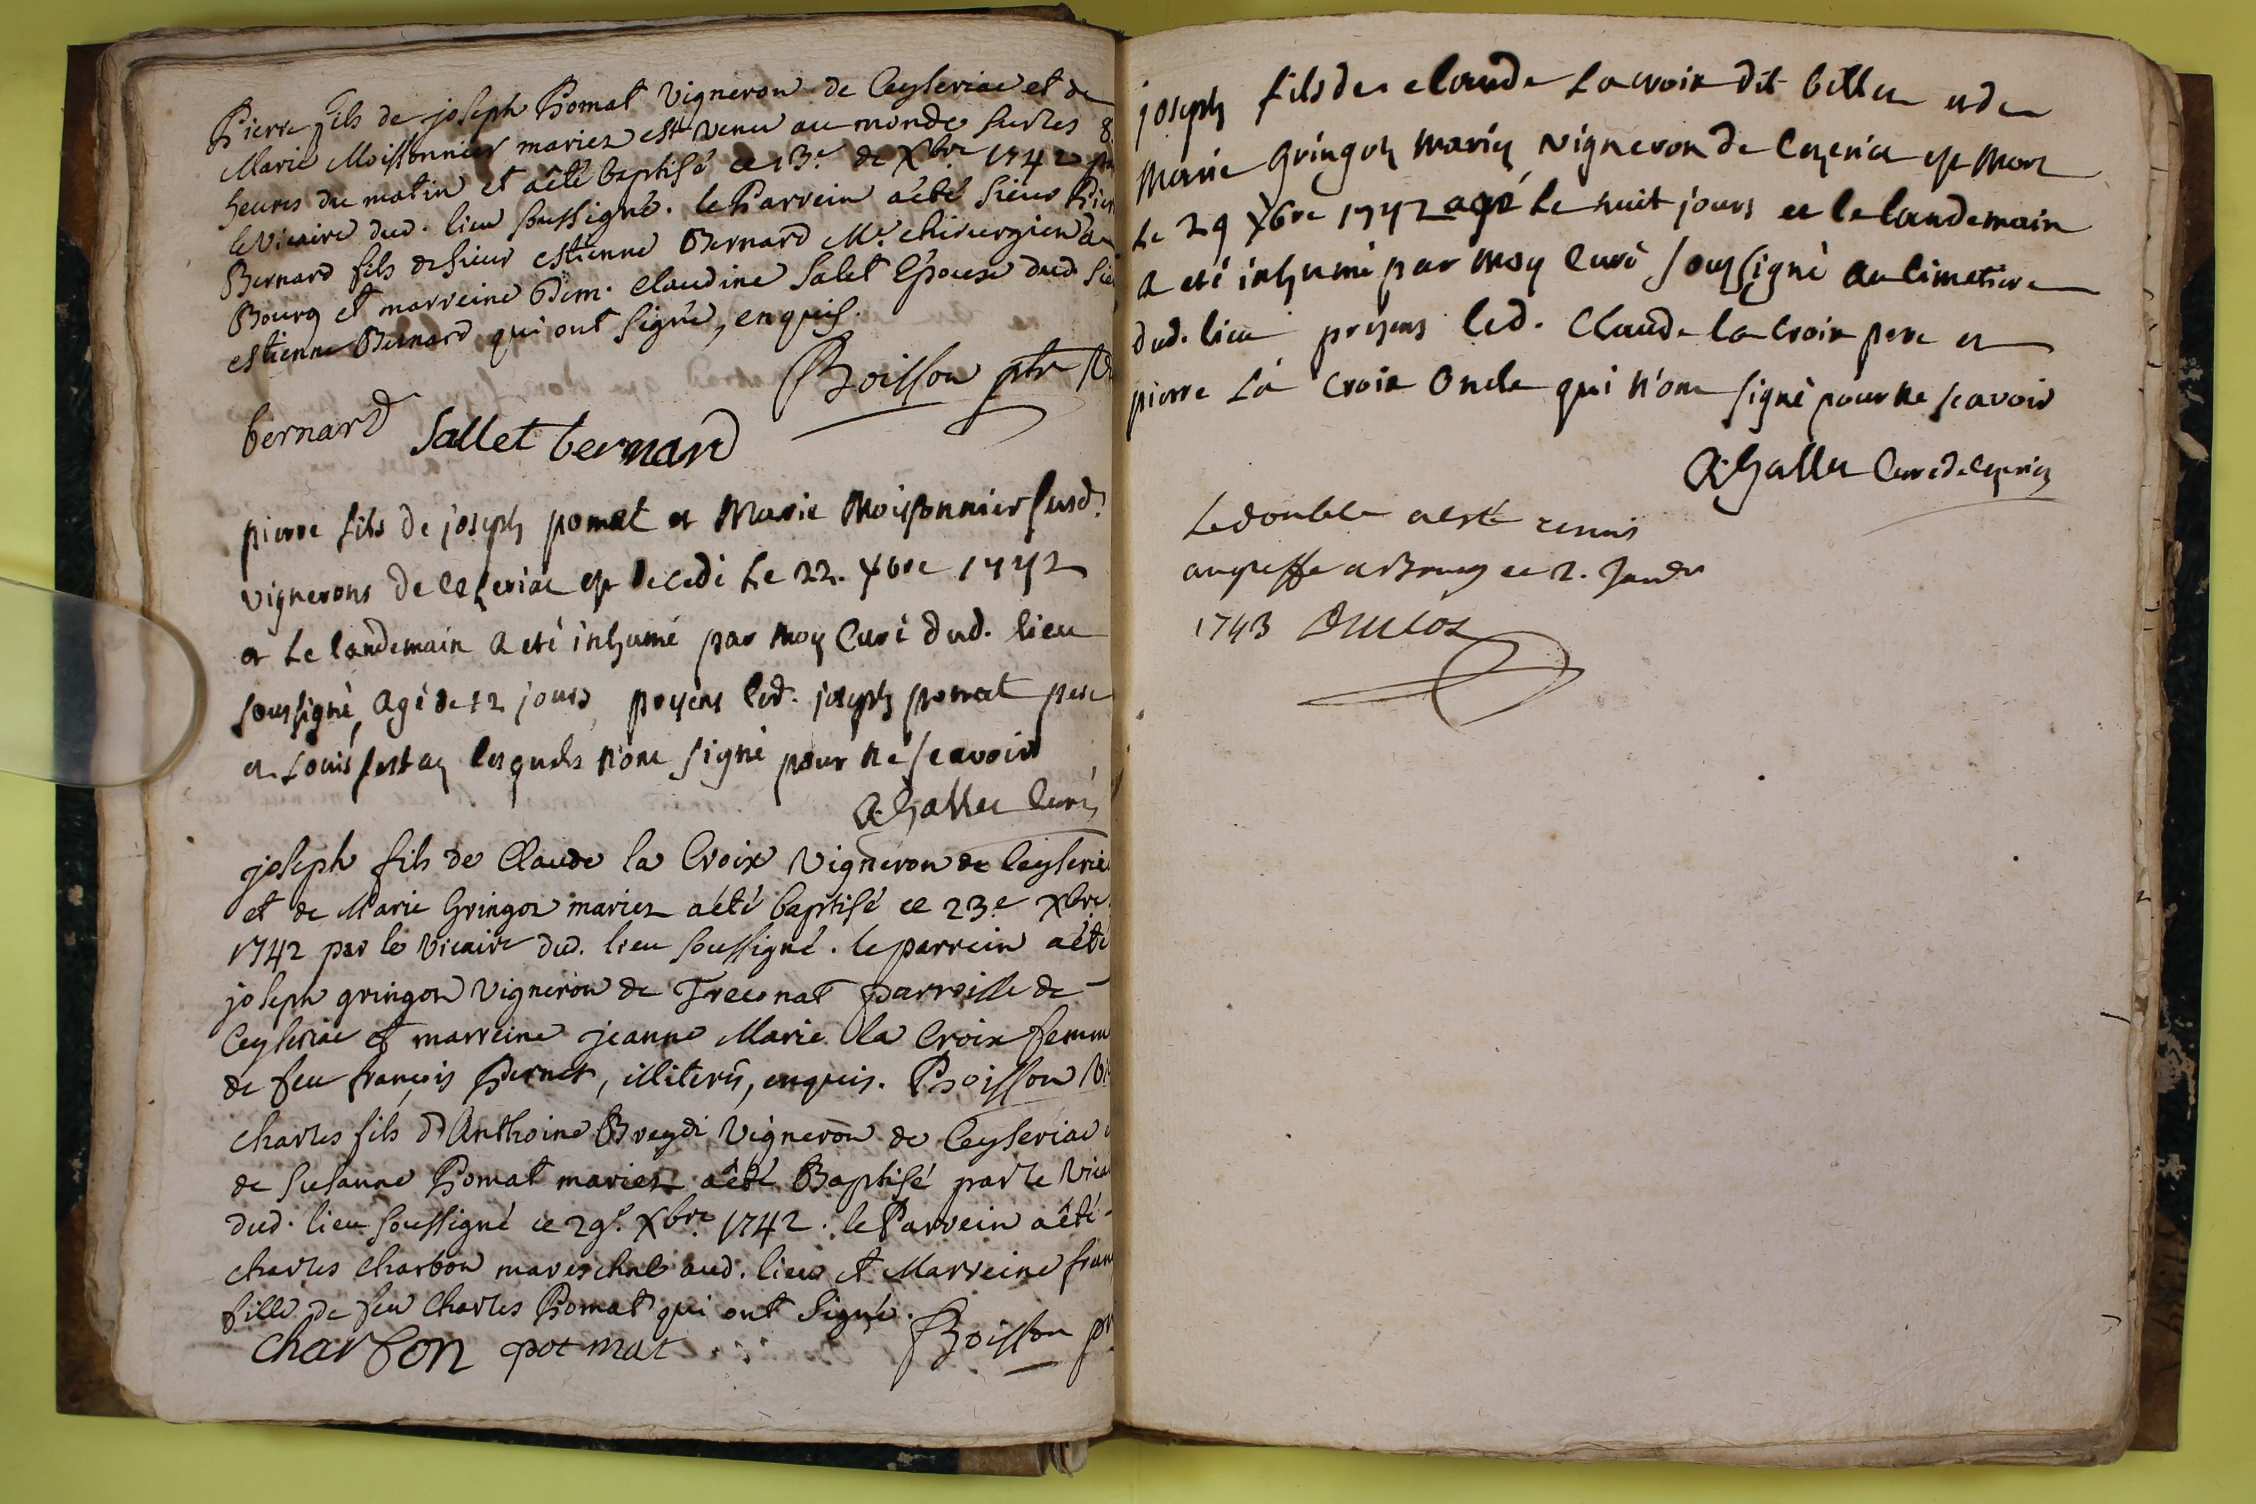 Pierre fils de joseph Pomat Vigneron de Ceyseriac et de
Marie Moissonnier mariez est venu au monde sur les 8
heures du matin et aété baptisé ce 13.e de Xbre 1742 par
le Vicaire dud. lieu soussigné. le Parrein aété sieur Pier
Bernard fils de sieur estienne Bernard Me. chirurgien a
Bourg et marreine Dem. Claudine Salet Epouse dud Sie
estienne Bernard qui ont signé, enquis.
Boisson ptr
bernard Sallet bernard
pierre fils de joseph pomat et Marie Moissonnier susd.
vignerons de Ceseriac est decedé Le 22. xbre 1742
et Le landemain a eté inhumé par moy Curé dud. lieu
soussigné, agé de 12 jours presens led. joseph pomat pere
et Louis lesquels n'ont signé pour ne scavoir
Curé
joseph fils de Claude la Croix Vigneron de Ceyseria
et de Marie Gringoz mariez aété baptisé ce 23.e Xbre
1742 par le Vicaire dud. lieu soussigné. le parrein aété
joseph gringoz Vigneron de Treconat parroisse de
Ceyseriac et marreine jeanne Marie la Croix femm
de feu françois Pernet, illiterés, enquis. Boisson Vi
charles fils d'Anthoine Breydi Vigneron de Ceyseriac
de Susanne Pomat mariez aété Baptisé par le Vica
dud. lieu soussigné ce 29.e Xbre 1742. le Parrein aété
charles charbon mareschal aud. lieu et Marreine fran
fille de feu Charles Pomat qui ont signé.
Boisson pr
charbon potmat
joseph fils de claude Lacroix dit et de
Marie Gringoz mariez vigneron de est mort
Le 29 xbre 1742 agé de huit jours et le landemain
a eté inhumé par moy Curé soussigné au cimetiere
dud. lieu presens led. Claude la Croix pere et
pierre La Croix Oncle qui n'ont signé pour ne scavoir
Curé de
Le double a esté remis
au greffe a Bourg ce 2. Janvr
1743